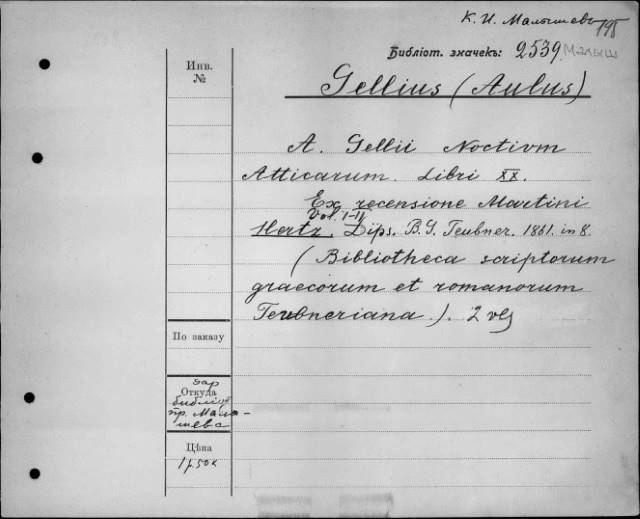 К. И. Малышевъ 195
Библіот. значекъ: 2539 Малыш
Инв.
№
Gellius (Aulus)
A. Gellii Noctium
Atticarum. Libri XX.
Ex recensione Martini
Vol. I-II
Hertz. Lips. B. G. Teubner. 1861. in 8.
(Bibliotheca scriptorum
graecorum et romanorum
Teubneriana.). 2 
По заказу
Откуда
дар
библіот
пр. Малы-
шева
Цѣна
1 р. 50 к